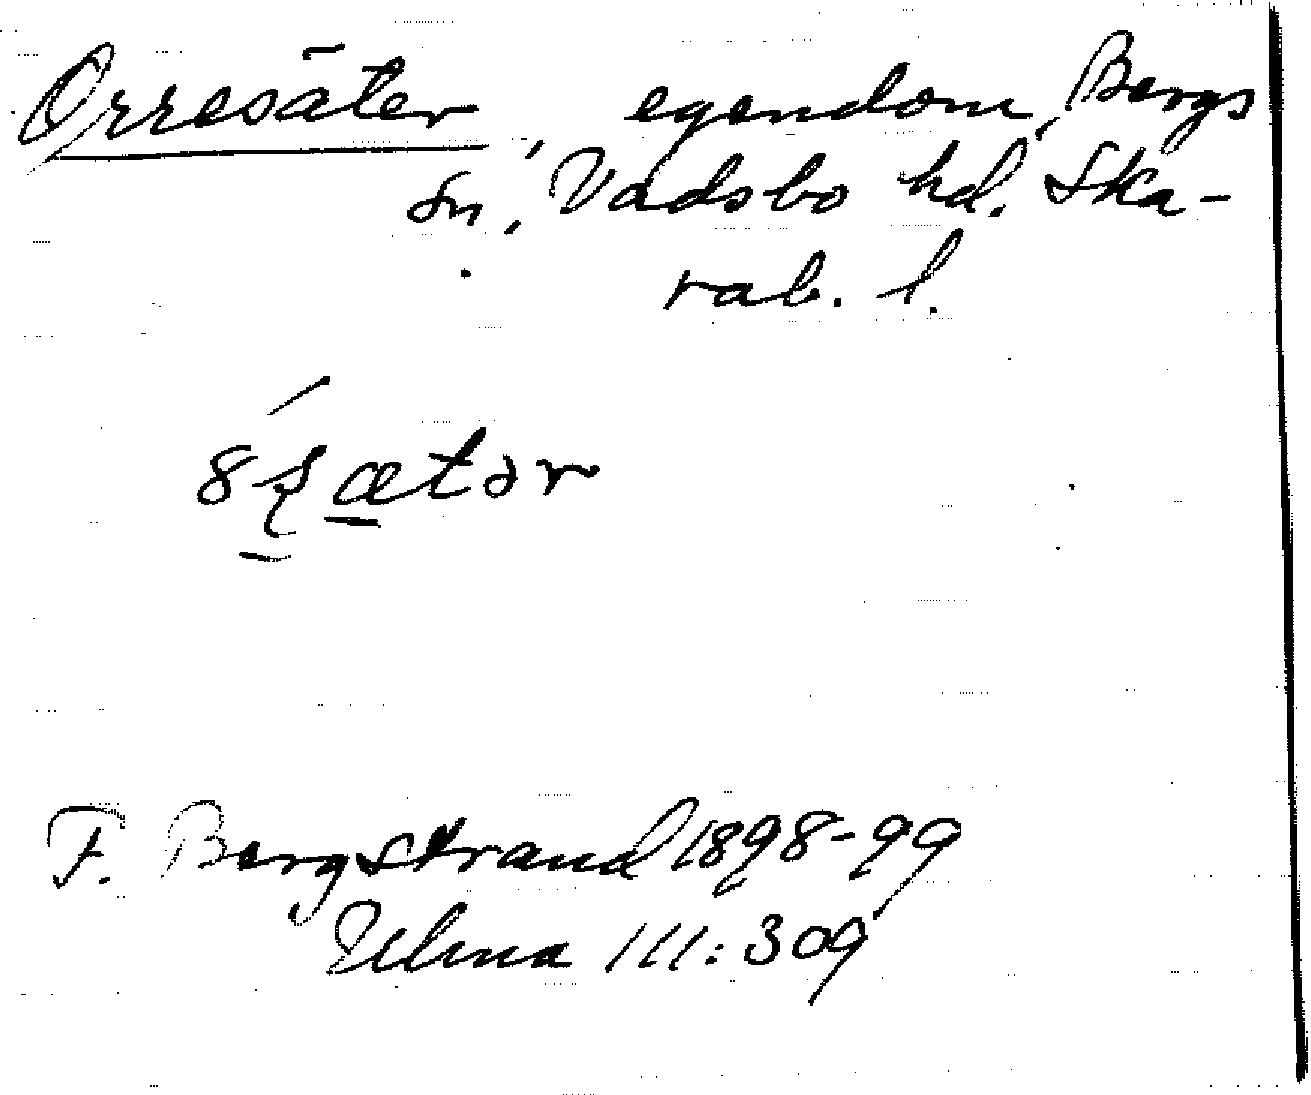 Orresäter, egendom, Bergs
sn, Vadsbo hd. Ska-
rab. l.
F. Bergstrand 1898-99
Ulma 111:309